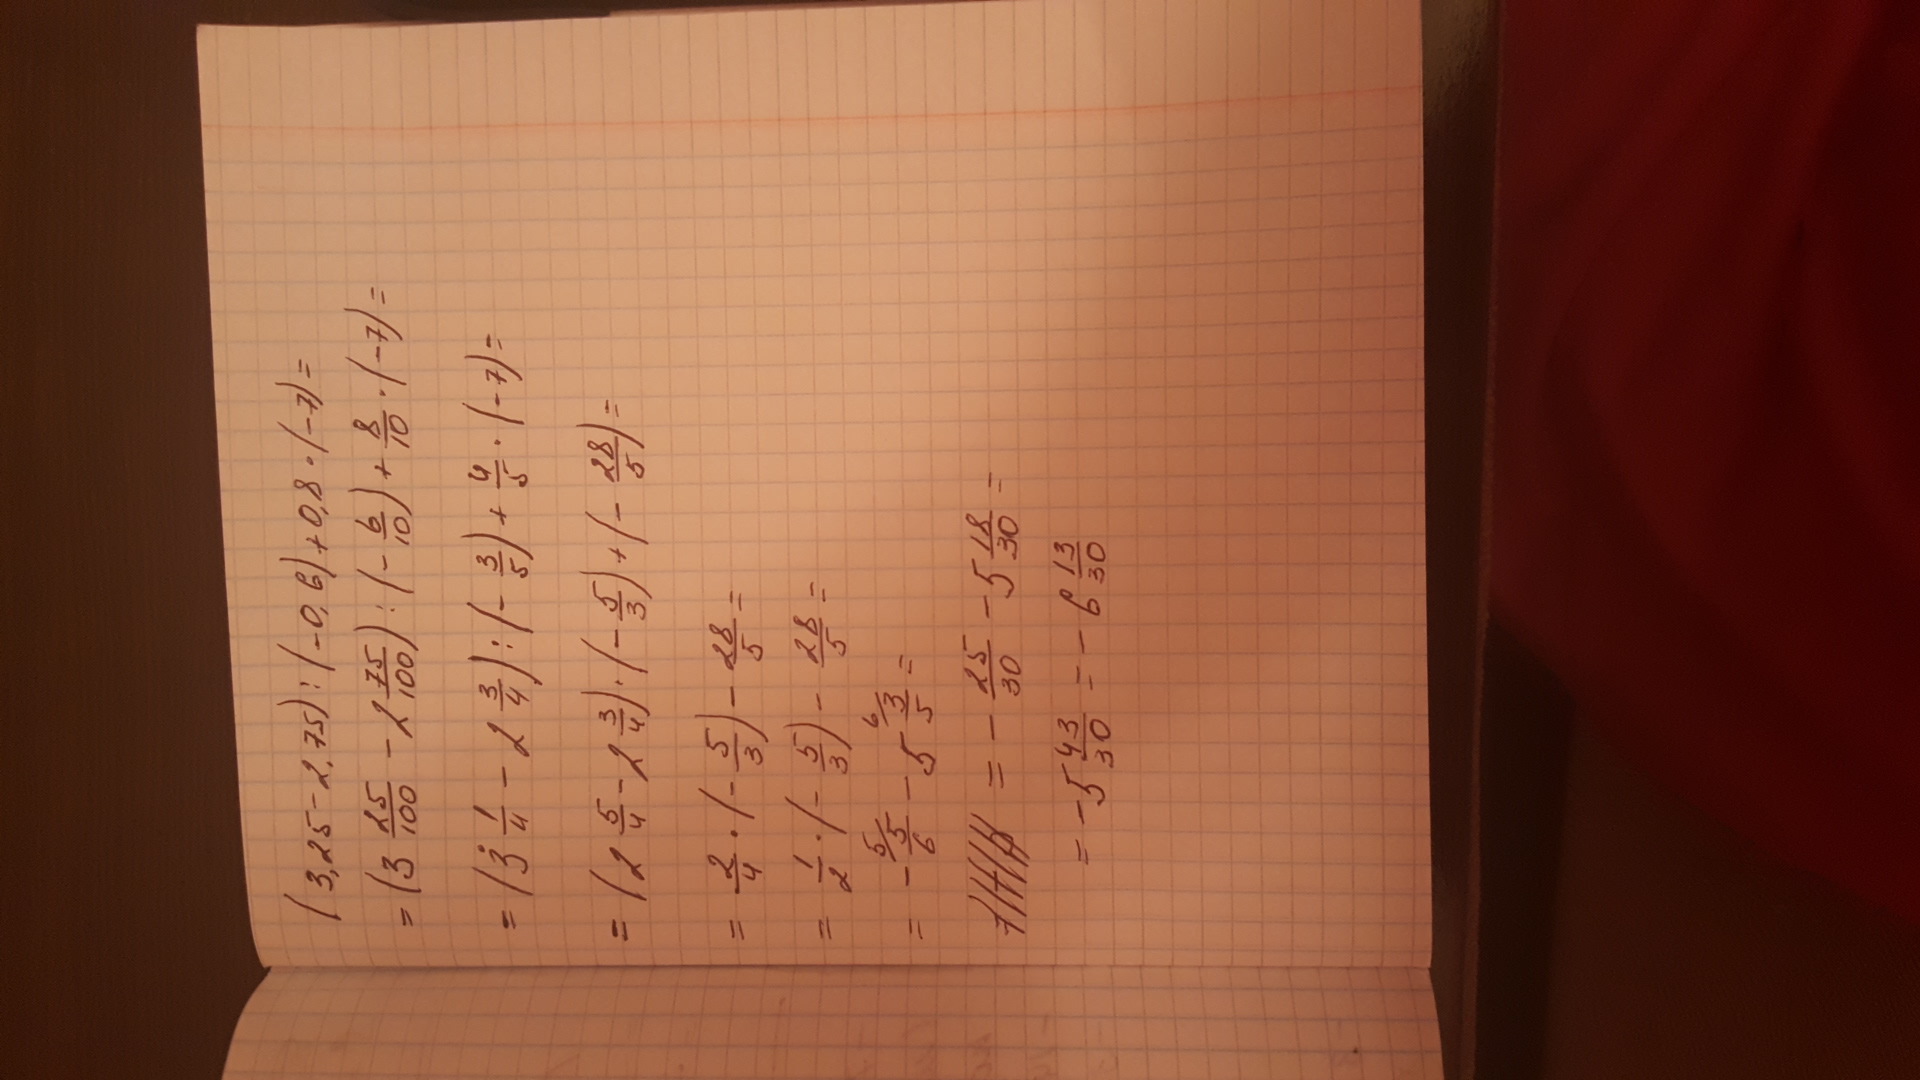 (3,25 - 2,75) : (-0,6) + 0,8 · (-7) =
= (3 25/100 - 2 75/100) : (- 6/10) + 8/10 · (-7) =
= (3 1/4 - 2 3/4) : (- 3/5) + 4/5 · (-7) =
= (2 5/4 - 2 3/4) · (- 5/3) + (- 28/5) =
= 2/4 · (- 5/3) - 28/5 =
= 1/2 · (- 5/3) - 28/5 =
= - 5/ 5/6 - 5 6/ 3/5 =
= - 25/30 - 5 18/30 =
= - 5 43/30 = - 6 13/30